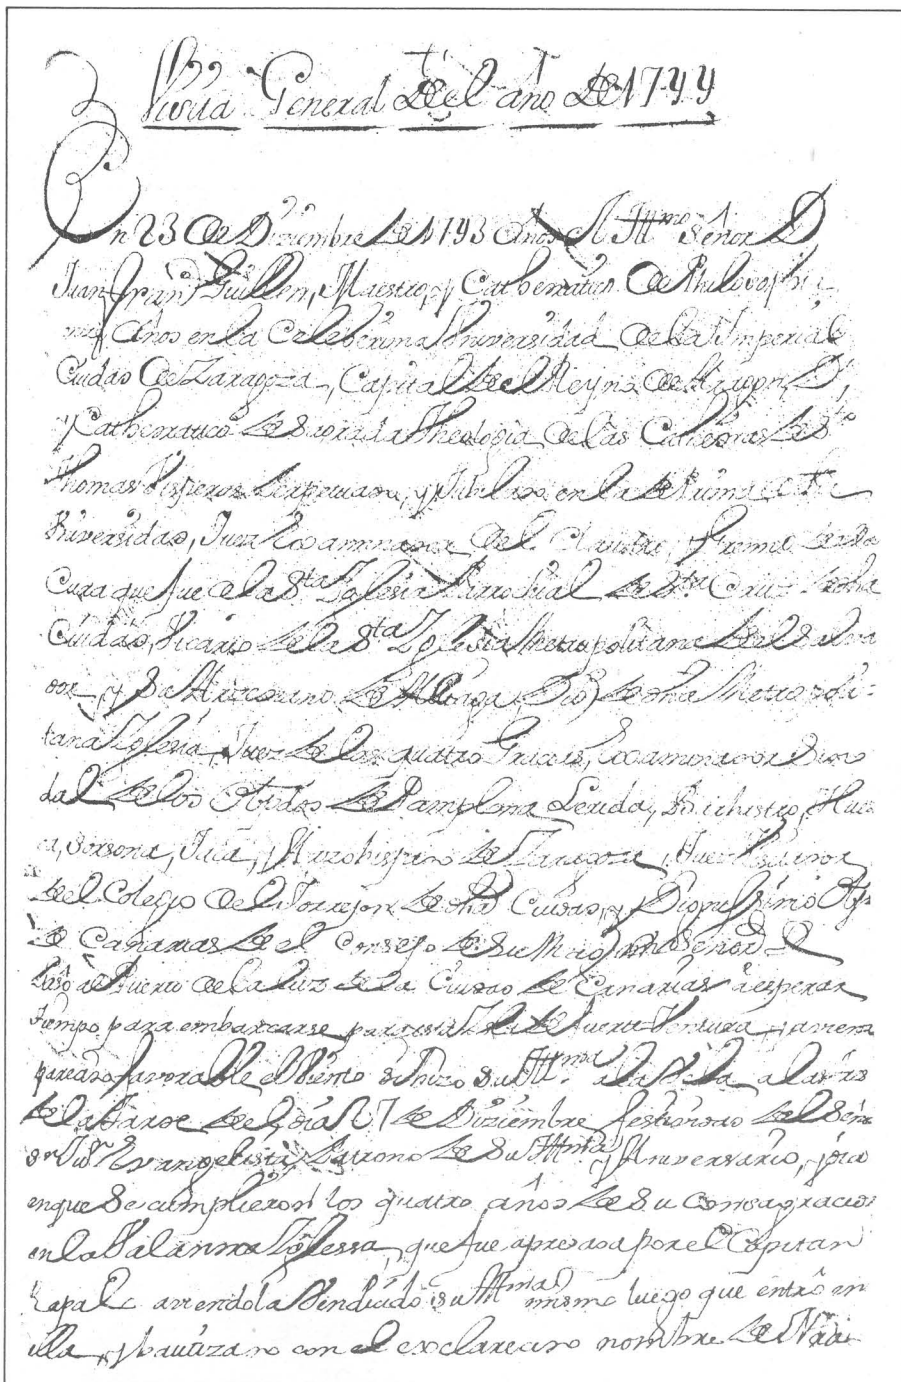 Visita General de el año de 1744
En 23 de Diziembre de 1743 años el Illmo Señor D
Juan Franco Guillen, Maestro, y Cathedratico de Philosophia
años en la Celeberrima Universidad de la Imperial
Ciudad de Zaragoza, Capital de el Reyno de Aragon, Dr,
y Cathedratico de Sagrada Theologia de las Cathedras de Sto
Thomas Visperas de y Jubilado en la de Prima de dha
Universidad, Juez Examinador de el Claustro, y Gremio de ella
Cura que fue de la Sta Iglesia Parroquial de Sta Cruz de dha
Ciudad, Vicario de la Sta Iglesia Metropolitana de el Salva
dor, y su Arcediano de Aliaga (Dig) de dha Metropoli-
tana Iglesia, Juez de los quatro Examinador Sino
dal de los Obpdos de Pamplona, Lerida, Hues
ca, Sorsona, Jaca, y Arzobispado de Zaragoza, Juez
de el Colegio de el Torrejon de dha Ciudad, y Dignissimo Obpo
de Canarias de el Consejo de Su Magd dho Señor
baxô al Puerto de la Luz de la Ciudad de Canarias â esperar
tiempo para embarcarse para esta Isla de Fuerte Ventura, y aviendo
parecido favorable el Viento se hizo Su Illma a la Vela a las tres
de la tarde de el dia 27 de Diziembre festividad de el Señor
Sn Jun Evangelista Patrono de Su Illma y Aniversario, y dia
en que se cumplieron los quatro años de su Consagracion
en la Balandra Ynglessa, que fue apresada por el Capitan
aviendola Bendicido su Illma mismo luego que entrô en
ella, y bautizado con el exclarecido nombre de Nra